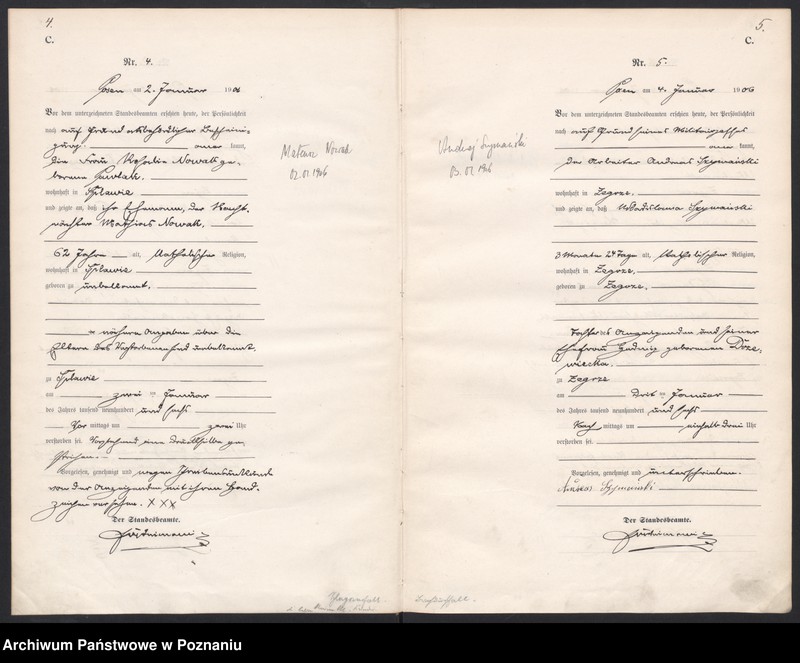 4.
C.
Nr. 4.
Posen am 2. Januar 1906
Vor dem unterzeichneten Standesbeamten erschien heute, der Persönlichkeit
nach auf Grund ortsbehördlicher Bescheini-
gung kannt,
die Frau Rosalie Nowak ge-
borene Pawlak.
wohnhaft in Splawie
und zeigte an, daß ihr Ehemann, der Nacht-
wächter Mathias Nowak,
62 Jahre alt, katholischer Religion,
wohnhaft in Splawie
geboren zu unbekannt.
nähere Angaben über die
Eltern des Verstorbenen sind unbekannt.
zu Splawie
am zwei ten Januar
des Jahres tausend neunhundert und sechs
Vor mittags um zwei Uhr
verstorben sei. Vorstehend eine Drucksilbe ge-
strichen.
Vorgelesen, genehmigt und wegen Schreibensunkunde
von der Anzeigenden mit ihrem Hand-
zeichen versehen. XXX
Der Standesbeamte.
Mateusz Nowak
02.01.1906
5.
C.
Nr. 5.
Posen am 4. Januar 1906
Vor dem unterzeichneten Standesbeamten erschien heute, der Persönlichkeit
nach auf Grund seines Militärpasses
kannt,
der Arbeiter Andreas Szymański
wohnhaft in Zegrze.
und zeigte an, daß Wladislawa Szymański
3 Monate 24 Tage alt, katholischer Religion,
wohnhaft in Zegrze.
geboren zu Zegrze.
Tochter des Anzeigenden und seiner
Ehefrau Hedwig geborenen Drze-
wiecka.
zu Zegrze
am Drit ten Januar
des Jahres tausend neunhundert und sechs
Nach mittags um einhalb drei Uhr
verstorben sei.
Vorgelesen, genehmigt und unterschrieben.
Szymanski
Der Standesbeamte.
Andrzej Szymański
03.01.1906
Archiwum Państwowe w Poznaniu